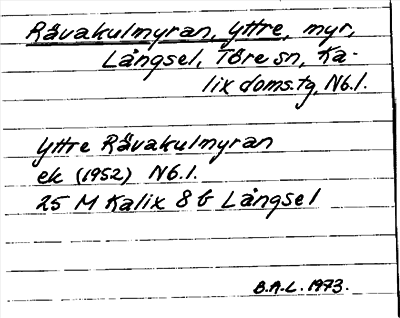 Rävakulmyran, Yttre, myr,
Långsel, Töre sn, Ka-
lix doms.tg, Nb.l.
Yttre Rävakulmyran
ek (1952) Nb.l.
25 M Kalix 8 b Långsel
B.A.L. 1973.